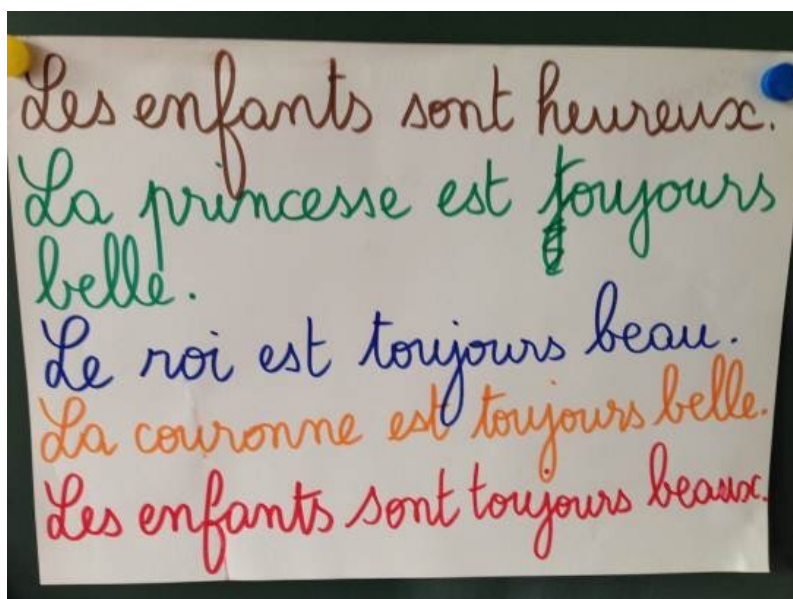 Les enfants sont heureux.
La princesse est toujours
belle.
Le roi est toujours beau.
La couronne est toujours belle.
Les enfants sont toujours beaux.